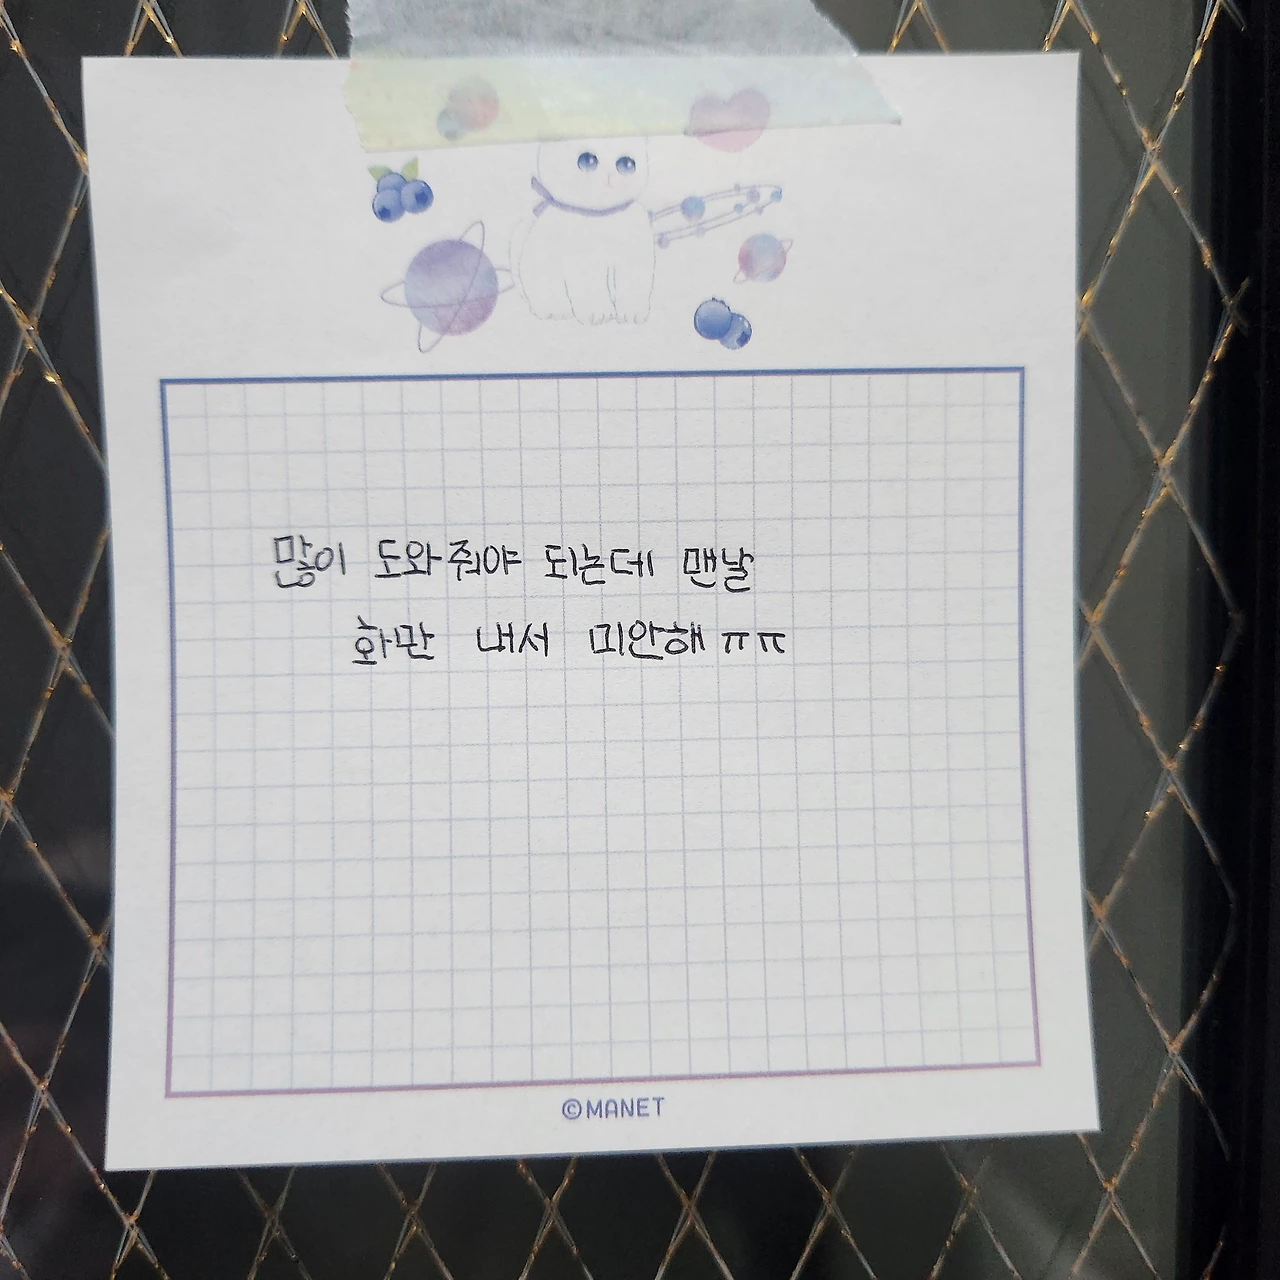 많이 도와줘야 되는데 맨날
화만 내서 미안해 ㅠㅠ
©MANET